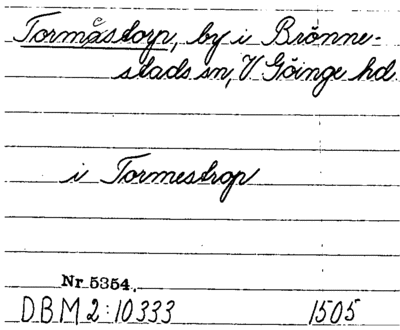 Tormåstorp, by i Brönne-
stads sn, V Göinge hd.
i Tormestrop
Nr 5354.
DBM 2:10333 1505